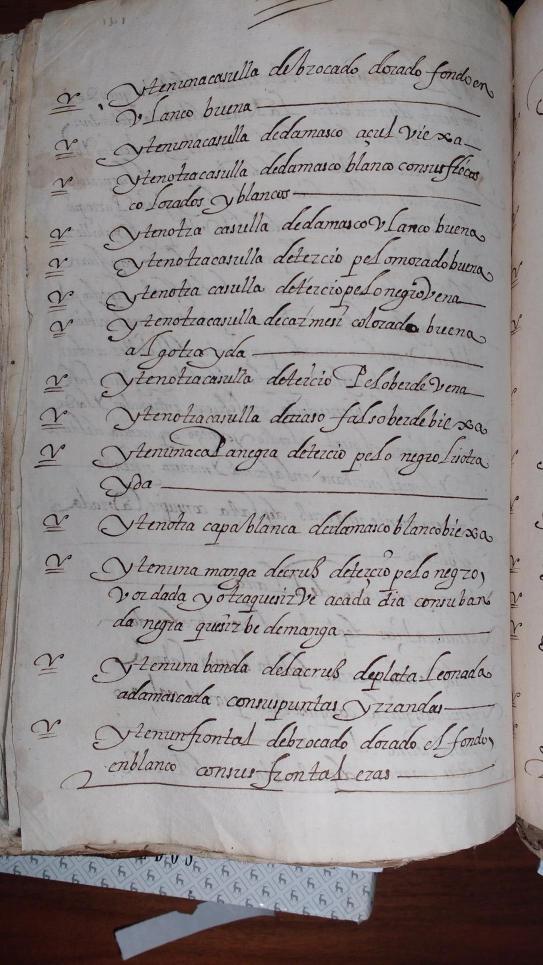 Yten una casulla de brocado dorado fondo en
vlanco buena
Yten una casulla de damasco açul viexa
Yten otra casulla de damasco blanco con sus flecos
colorados y blancos
Yten otra casulla de damasco vlanco buena
Yten otra casulla de tercio pelo morado buena
Yten otra casulla de tercio pelo negro vena
Yten otra casulla de carmesi colorado buena
algo trayda
Yten otra casulla de tercio Pelo berde vena
Yten otra casulla de raso falso berde biexa
Yten una caPa negra de tercio pelo negro
yda
Yten otra capa blanca de damasco blanco biexa
Yten una manga de crus de tercio pelo negro
vordada y otra que sirve a cada dia con su ban
da negra que sirbe de manga
Yten una banda de la crus de plata leonada
adamascada con sus puntas y rrandas
Yten un frontal de brocado dorado el fondo
en blanco con sus frontaleras